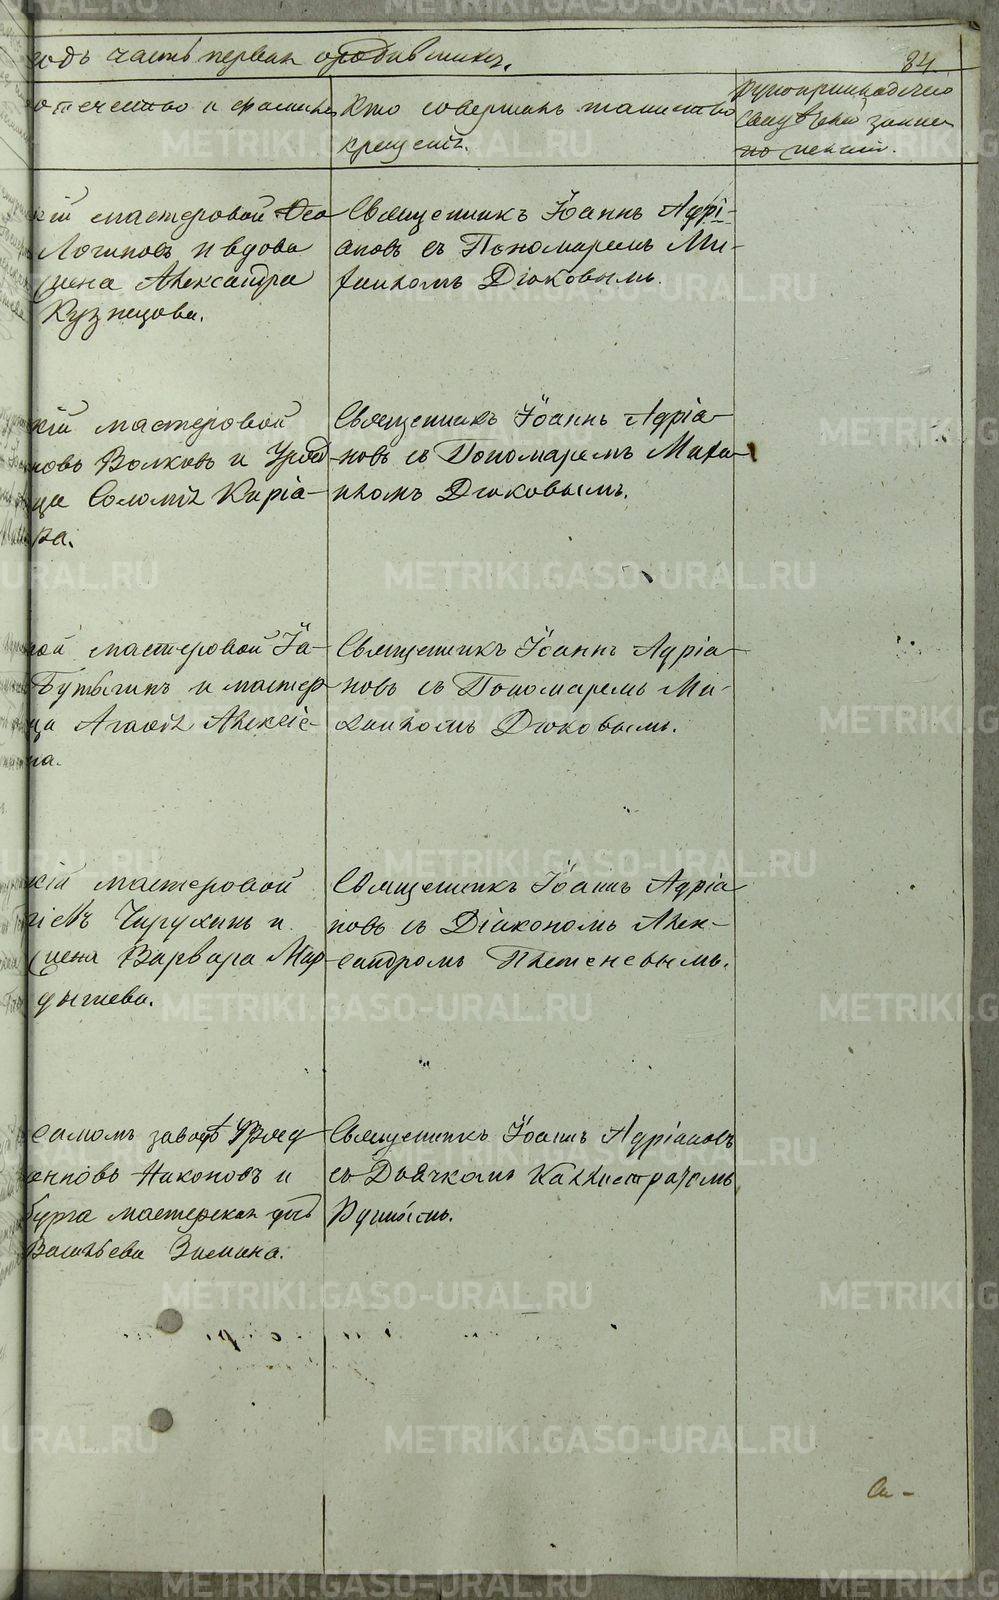 годъ часть первая о родившихся.
84.
отчество и фамилія
Кто совершалъ таинство
крещенія.
Рукоприкладство
по
кій мастеровой Ѳео
Логиновъ и вдова
Александра
Кузнецова.
Священникъ Іоаннъ Адрі-
ановъ съ Пономаремъ Ми-
хаиломъ Дюковымъ.
кій мастеровой
новъ Волковъ и
ца Соломія Киріа-
ва.
Священникъ Іоаннъ Адріа-
новъ съ Пономаремъ Миха-
иломъ Дюковымъ.
кой мастеровой
и мастер
ца Агафія Алексіе-
на.
Священникъ Іоаннъ Адріа-
новъ съ Пономаремъ Ми-
хаиломъ Дюковымъ.
кій мастеровой
гіевъ Чирухинъ и
жена Варвара Мар
дыгіева.
Священникъ Іоаннъ Адріа
новъ съ Діакономъ Алек-
сандромъ Плетеневымъ.
самомъ заводѣ
Никоновъ и
бурга мастерская
Васильева Зимина.
Священникъ Іоаннъ Адріановъ
съ Дьячкомъ Каллистратомъ
METRIKI.GASO-URAL.RU